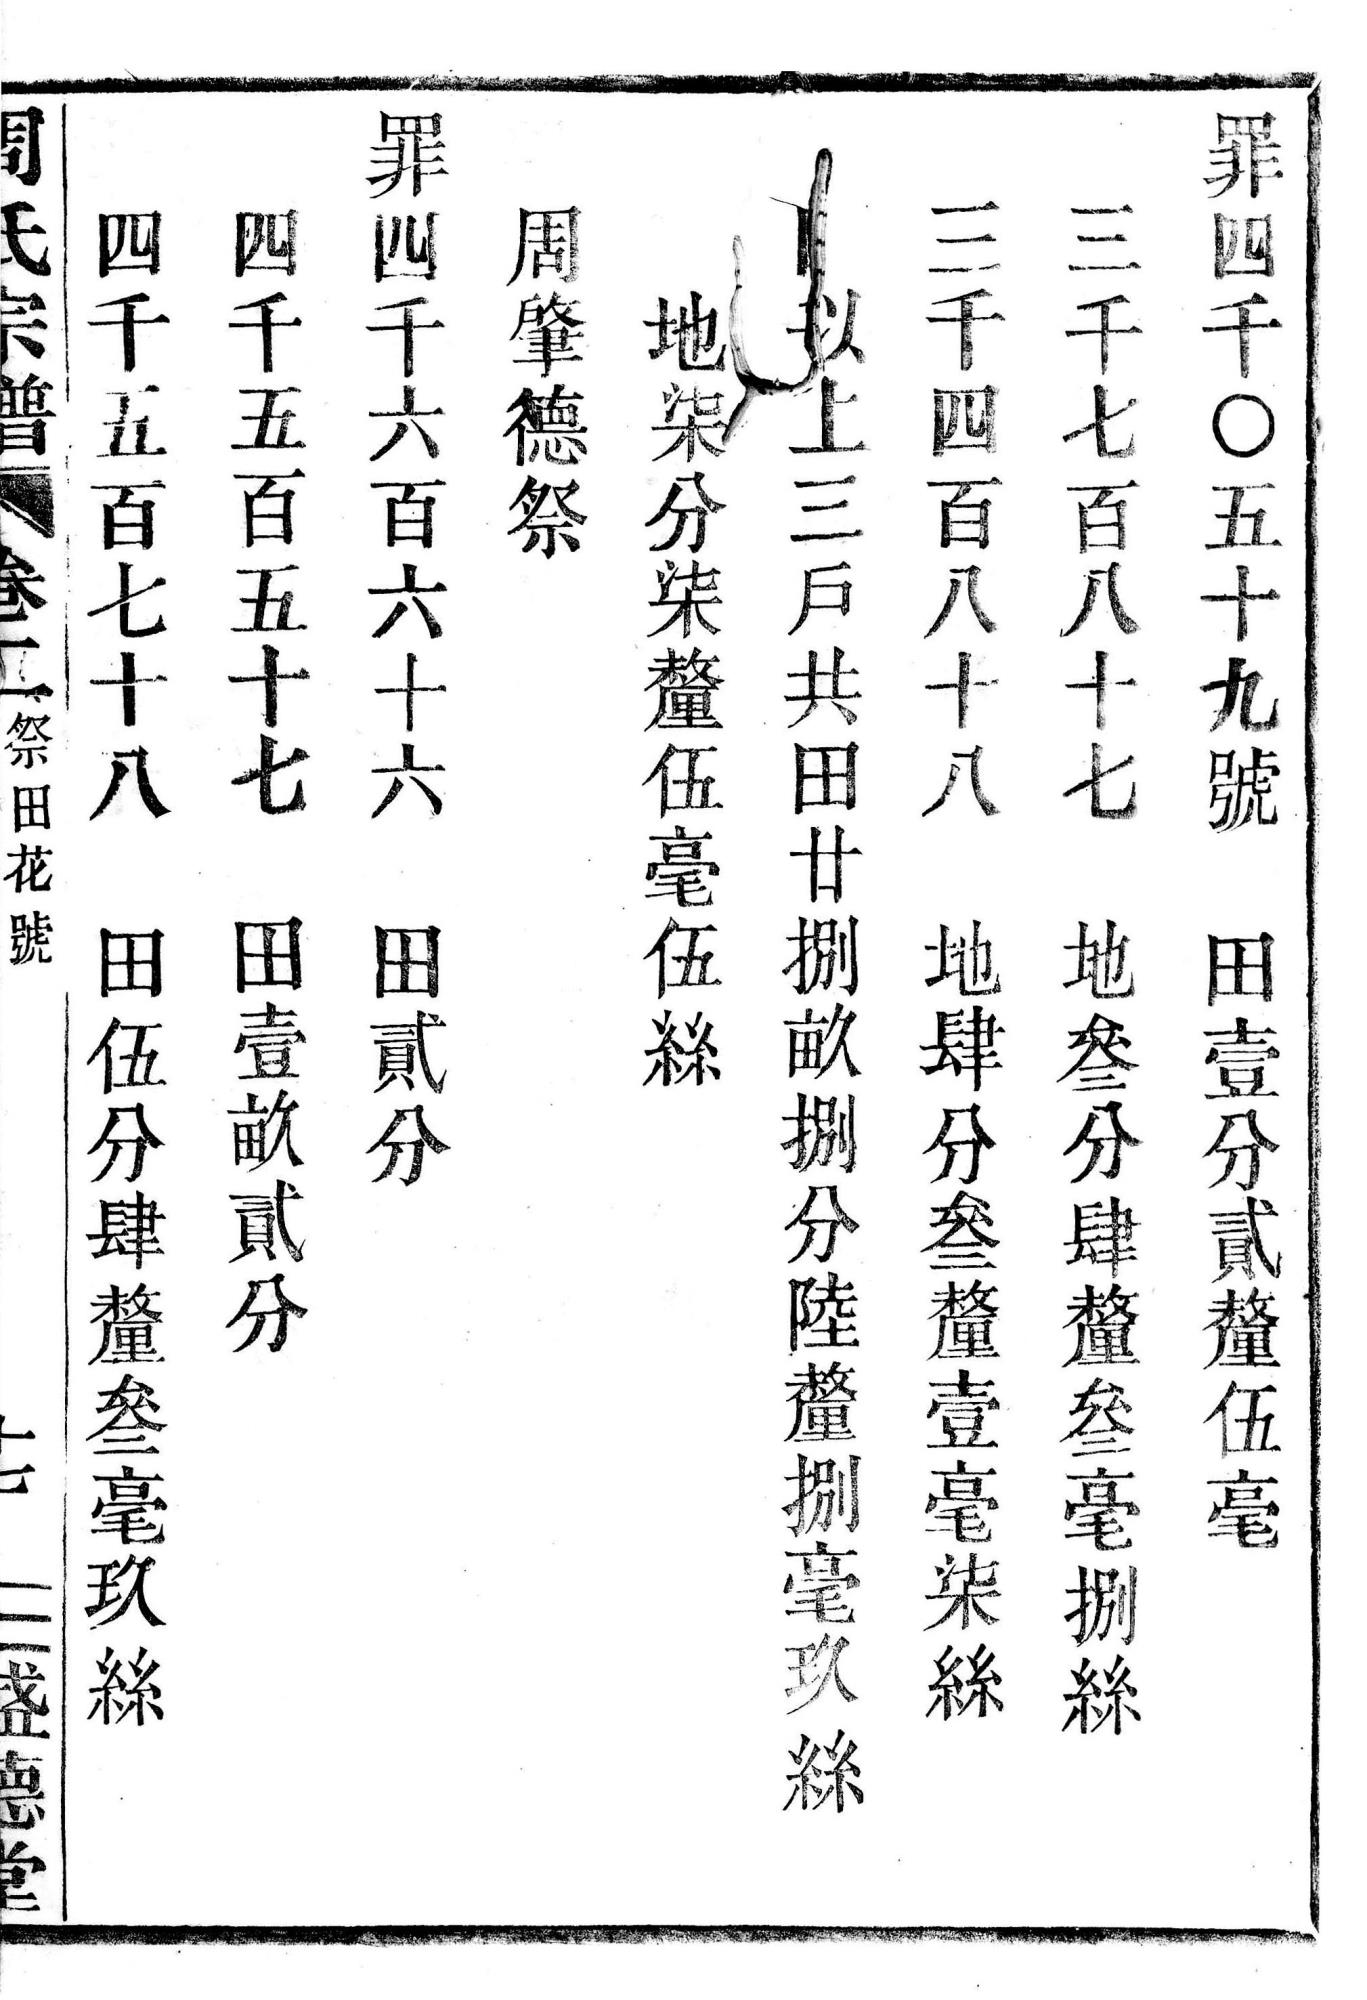 罪四千〇五十九號　田壹分貳釐伍毫
三千七百八十七　地叄分肆釐叄毫捌絲
二千四百八十八　地肆分叄釐壹毫柒絲
以上三戶共田廿捌畝捌分陸釐捌毫玖絲
地柒分柒釐伍毫伍絲
周肇德祭
罪四千六百六十六　田貳分
四千五百五十七　田壹畝貳分
四千五百七十八　田伍分肆釐叄毫玖絲
周氏宗譜　卷二　祭田花號　十七　盛德堂